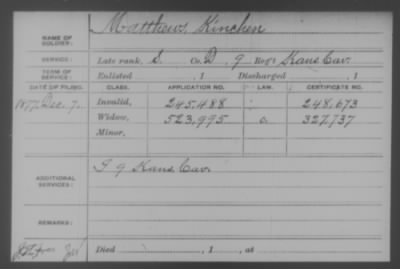 NAME OF SOLDIER: Matthews Kinchen
SERVICE: Late rank, S. Co. D, 9 Reg't Kans Cav.
TERM OF SERVICE: Enlisted , 1 Discharged , 1
DATE OF FILING. CLASS. APPLICATION NO. LAW. CERTIFICATE NO.
1877 Dec. 7. Invalid, 245,488 248,673
Widow, 523,995 327,737
Minor,
ADDITIONAL SERVICES: 9 Kans Cav.
REMARKS:
Died , 1 , at